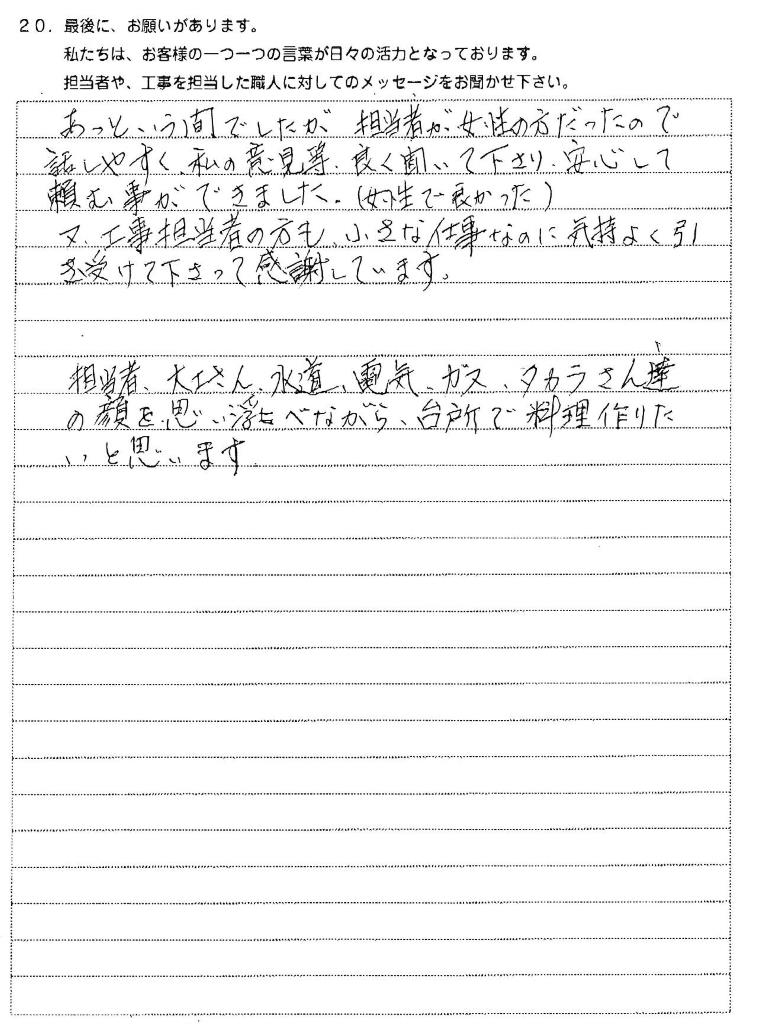 20. 最後に、お願いがあります。
私たちは、お客様の一つ一つの言葉が日々の活力となっております。
担当者や、工事を担当した職人に対してのメッセージをお聞かせ下さい。
あっという間でしたが 担当者が女性の方だったので
話しやすく、私の意見等、良く聞いて下さり、安心して
頼む事ができました。(女性で良かった)
又、工事担当者の方も、小さな仕事なのに気持よく引
き受けて下さって感謝しています。
担当者、大工さん、水道、電気、ガス、タカラさん達
の顔を思い浮べながら、台所で料理作りた
いと思います。